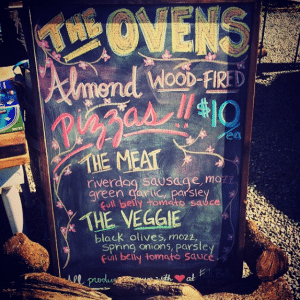 THE OVENS
Almond WOOD-FIRED
Pizzas!! $10
ea
THE MEAT
riverdog sausage, mozz
green garlic, parsley
full belly tomato sauce
THE VEGGIE
black olives, mozz,
spring onions, parsley
full belly tomato sauce
with ♥ at